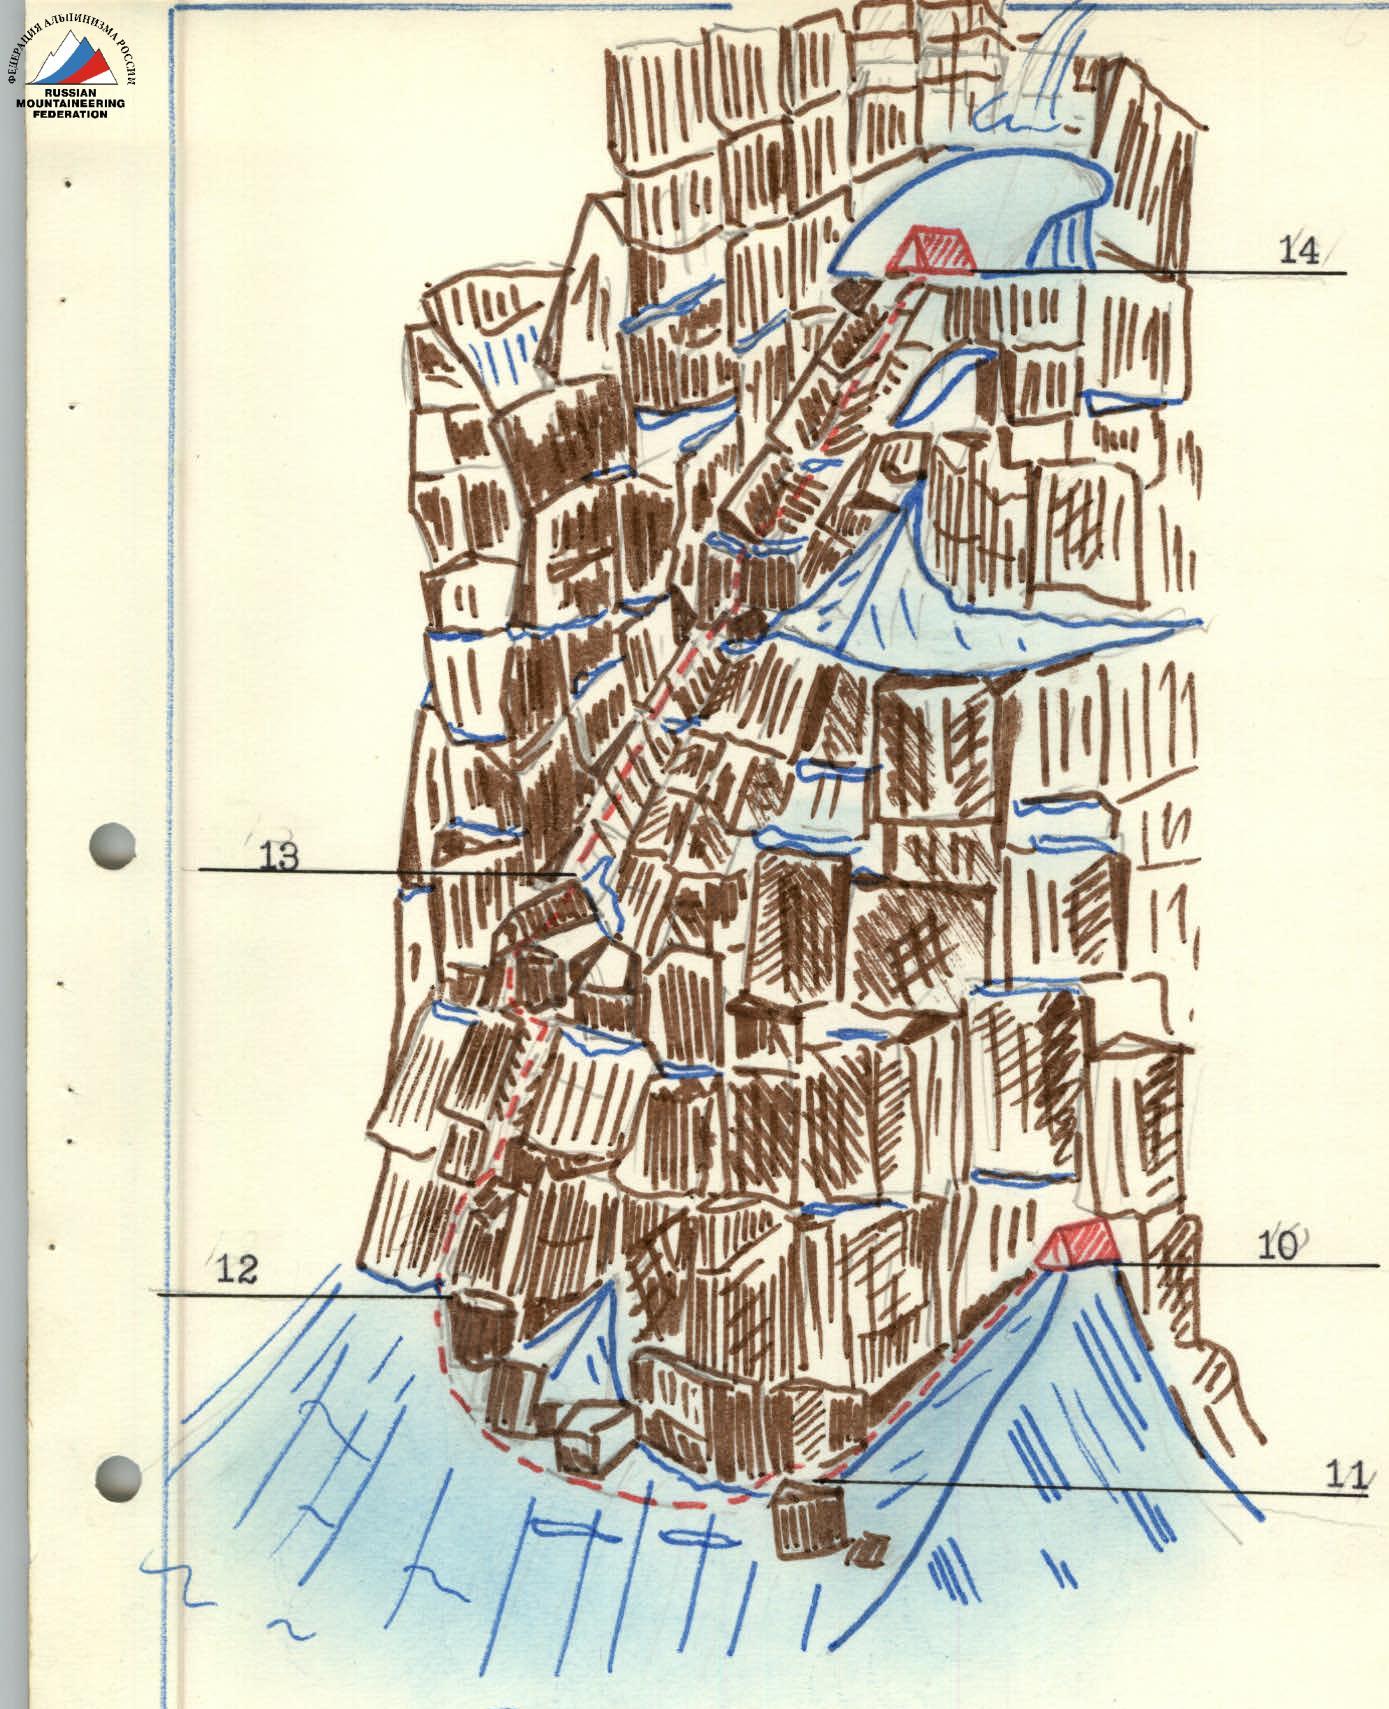 ФЕДЕРАЦИЯ АЛЬПИНИЗМА РОССИИ
RUSSIAN
MOUNTAINEERING
FEDERATION
14
13
12
10
11